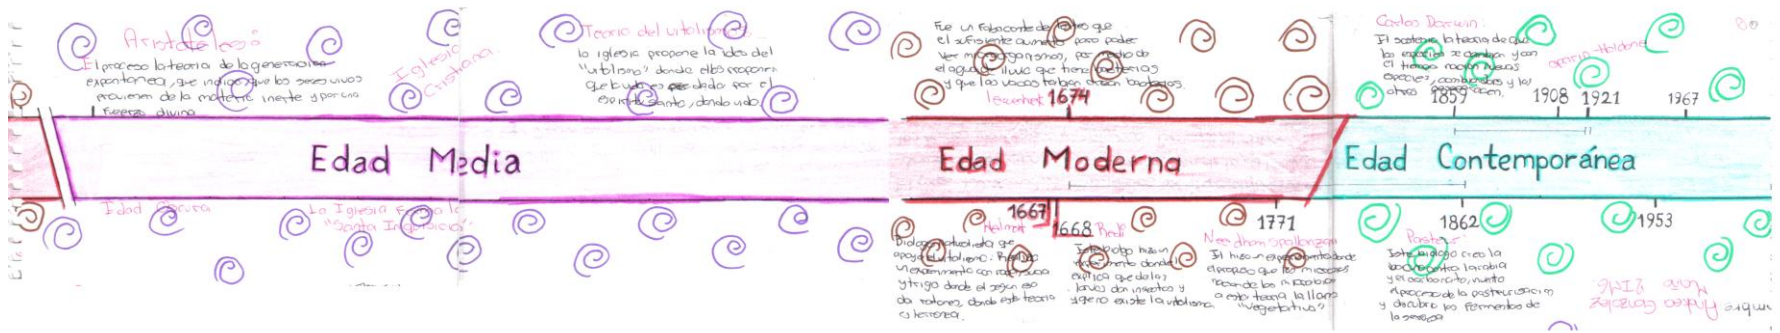 Aristoteles:
El proceso la teoria de la generación
expontanea, que indica que los seres vivos
provienen de la materia inerte y por una
fuerza divina
Iglesia
Cristiana.
Teoria del vitalismo
la iglesia propone la idea del
"vitalismo" donde ellos proponen
que todo es dado por el
espiritu santo, dando vida.
Edad Media
Edad Oscura
La Iglesia forma la
"Santa Inquisicion"
Fue un fabricante de lentes que
el suficiente aumento para poder
ver microorganismos, por medio de
el agua de lluvia que tiene bacterias
y que las vacas traban bacterias.
1674
Edad Moderna
1667
Helmont
1668 Redi
1771
Needham Spallanzani
Biologo naturalista que
apoya el vitalismo. Realizo
un experimento con ropa sucia
y trigo donde el
da ratones, donde esta teoria
es erronea.
Este biologo hizo un
experimento donde
explica que de las
larvas dan insectos y
que no existe la vitalismo
El hizo un experimento donde
el propuso que los microbios
nacen de los microbios
a esta teoria la llamo
"Vegetativa"
Carlos Darwin:
El sostenia la teoria de que
las especies se cambian y con
el tiempo nacian nuevas
especies, cambiandos y los
otros
oparin-Haldane
1859
1908
1921
1967
Edad Contemporánea
1862
1953
Pasteur
Este biologo creo la
vacuna contra la rabia
y el carboncito, invento
el proceso de la pasteurizacion
y descubrio los fermentos de
la cerveza
Andrea González